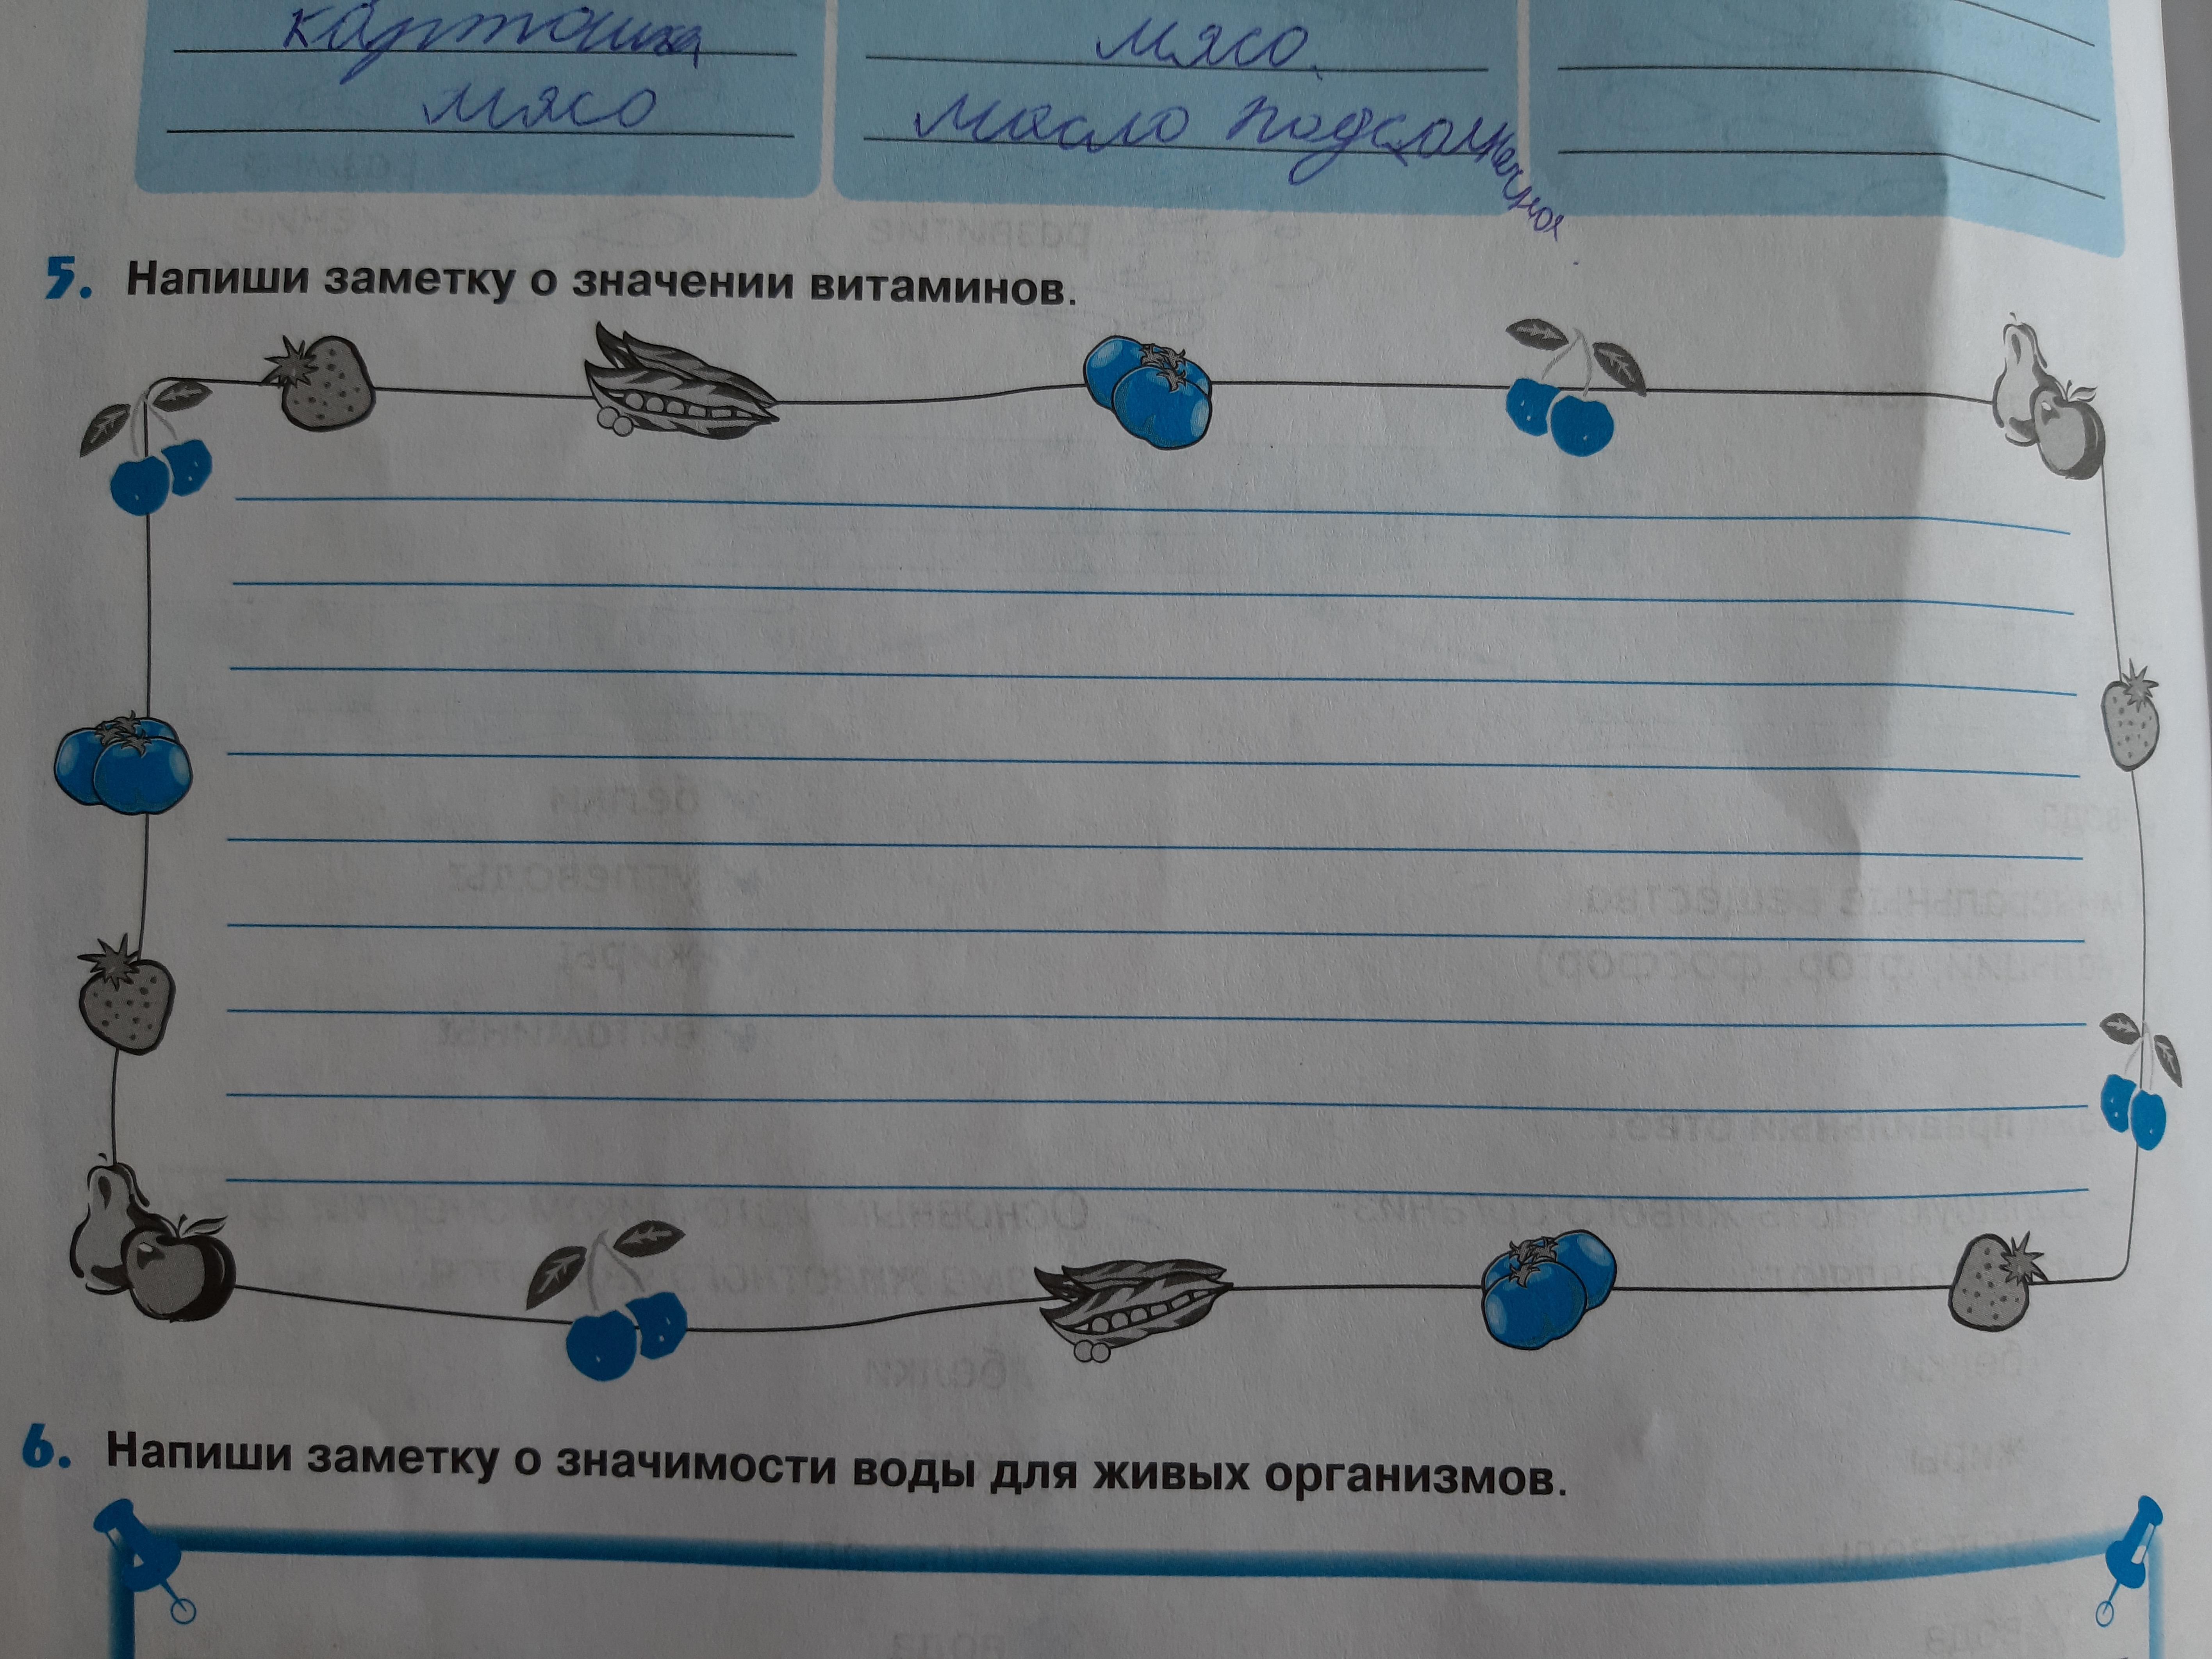 картошка
мясо
мясо.
масло подсолнечное
5. Напиши заметку о значении витаминов.
6. Напиши заметку о значимости воды для живых организмов.